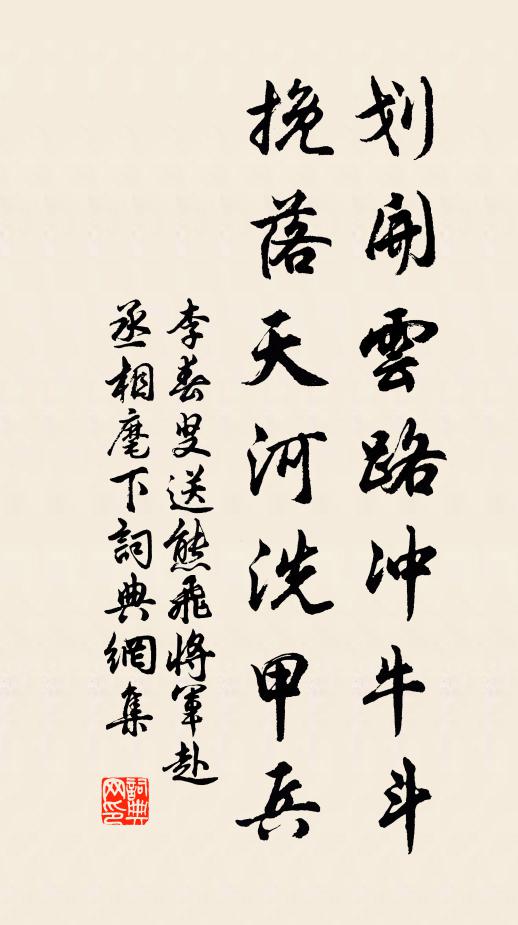 划開雲路冲牛斗
挽落天河洗甲兵
李春叟送熊飛將軍赴
丞相麾下詞典網集
詞典网印